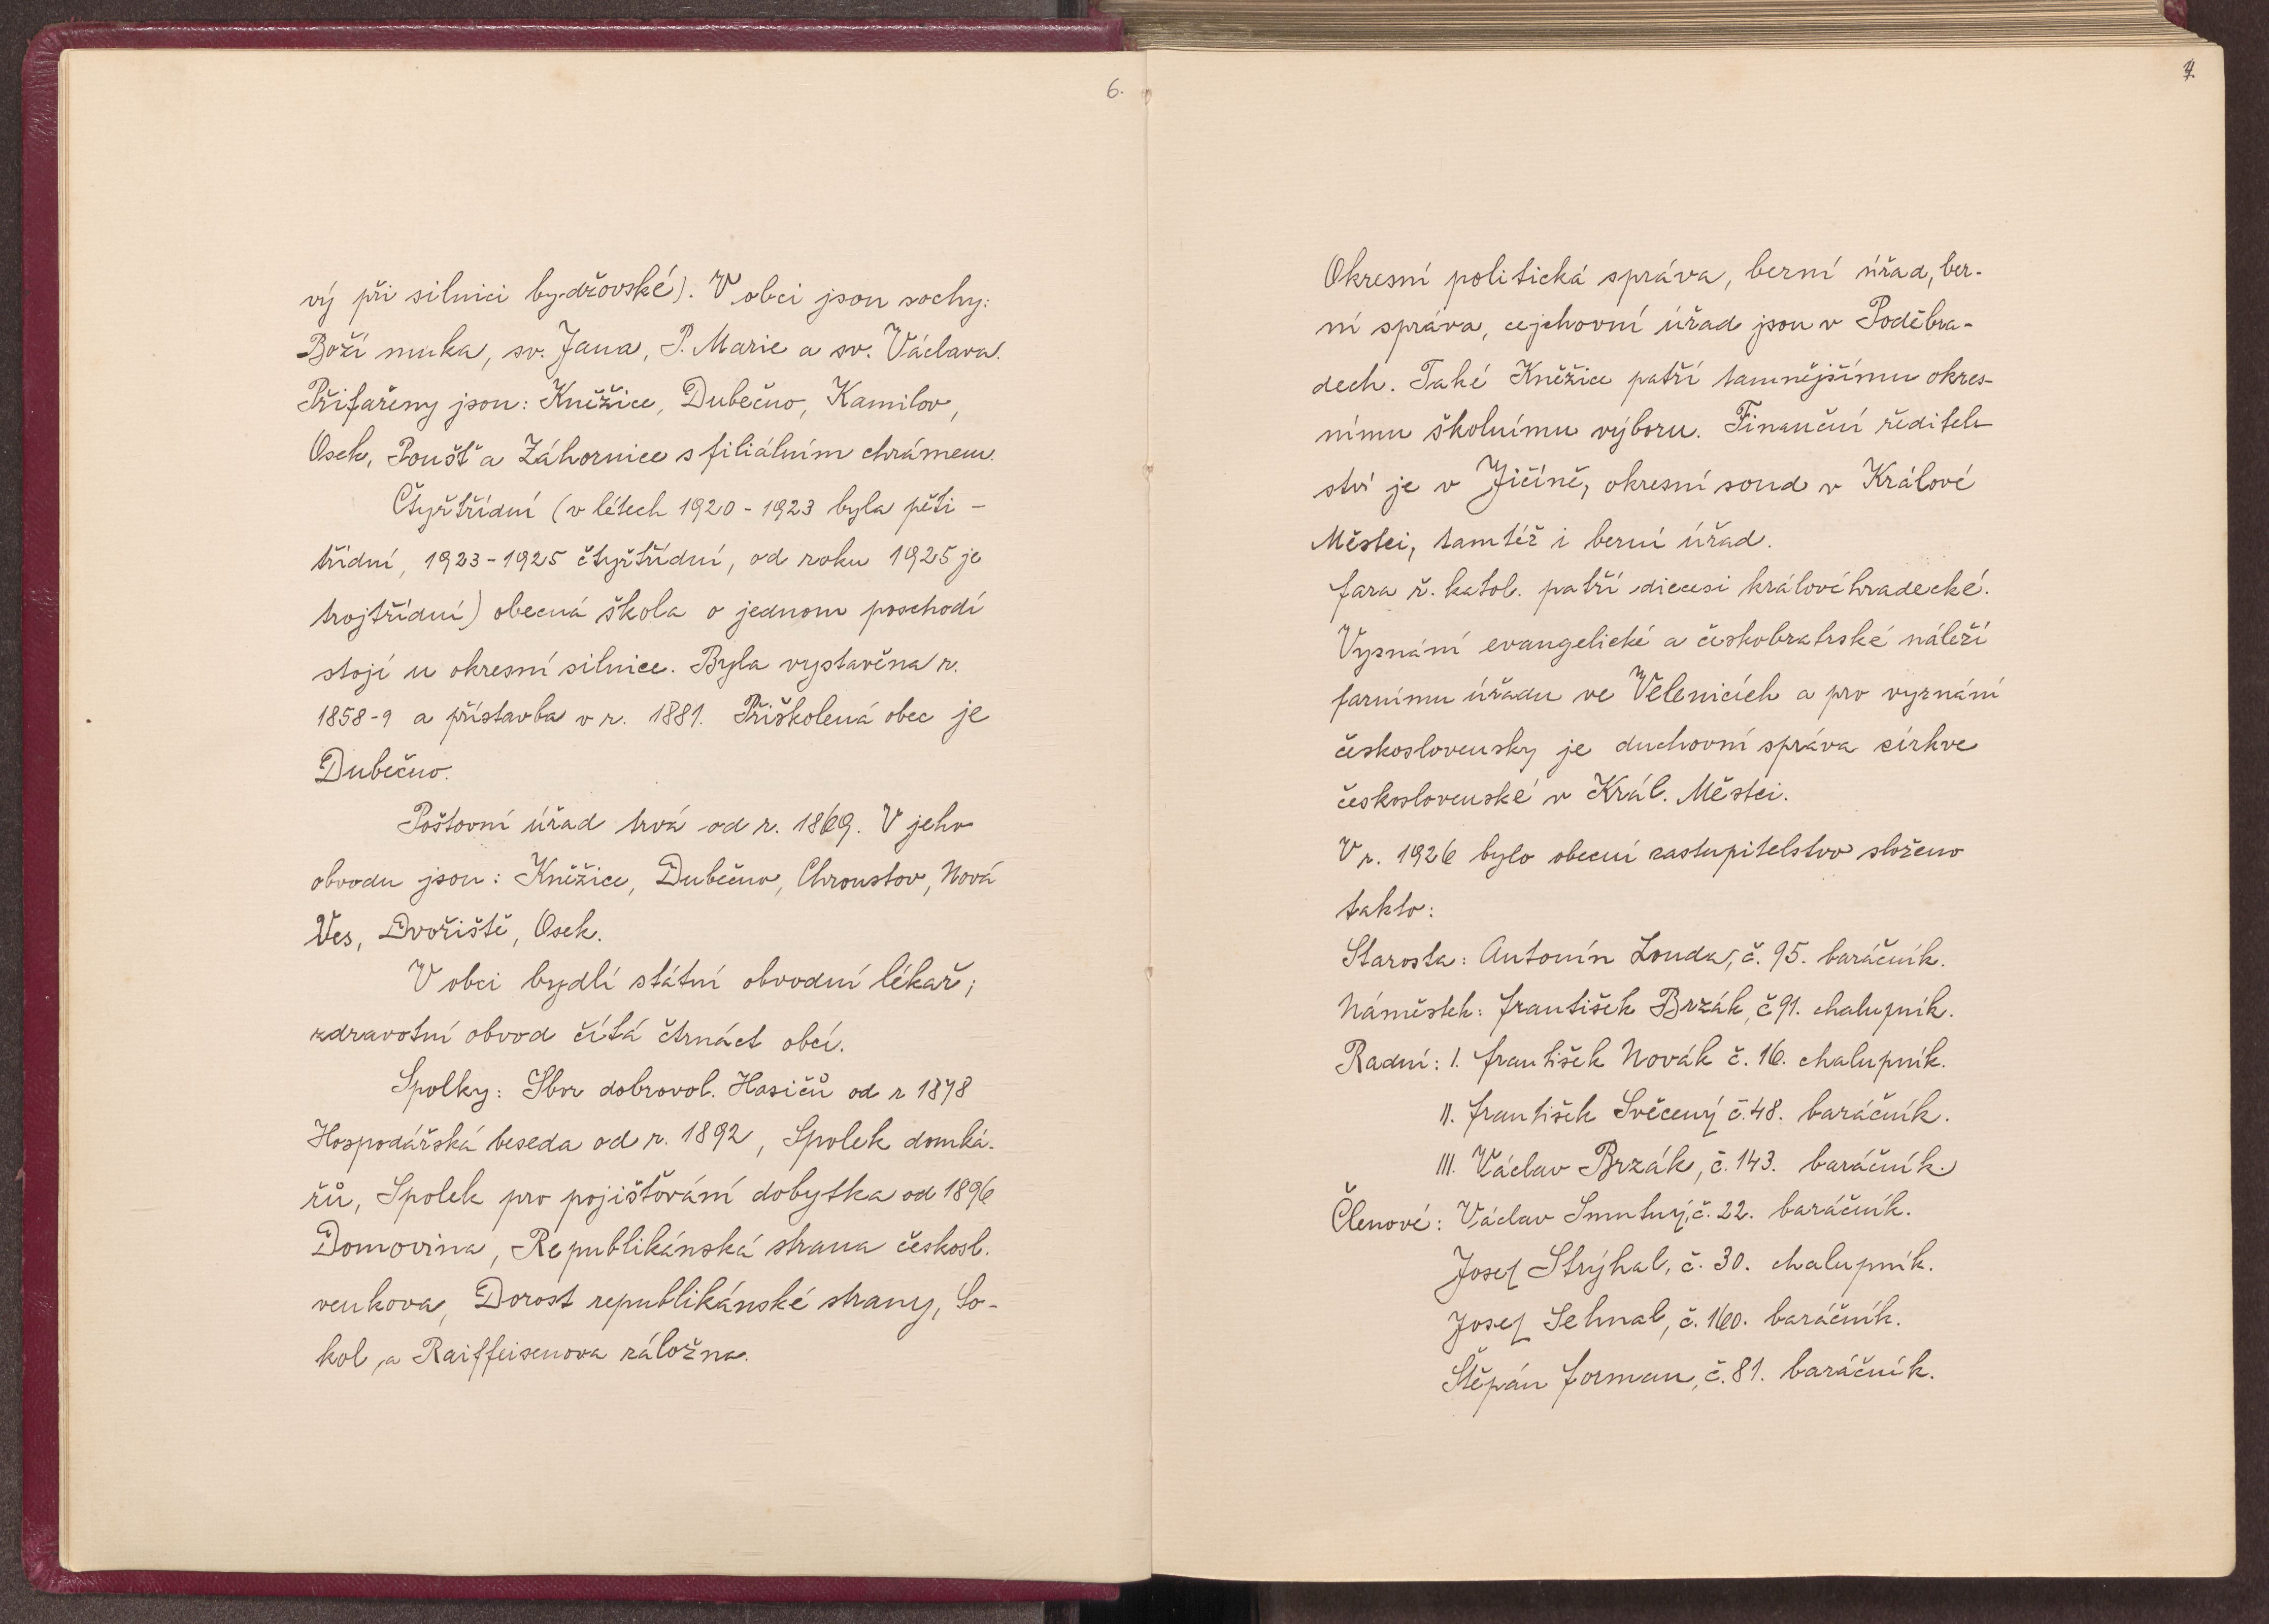 6.
vý při silnici bydžovské). V obci jsou sochy:
Boží muka, sv. Jana, P. Marie a sv. Václava.
Přifařeny jsou: Kněžice, Dubečno, Kamilov,
Osek, Poušť a Záhornice s filiálním chrámem.
Čtyřtřídní (v létech 1920 - 1923 byla pěti -
třídní, 1923-1925 čtyřtřídní, od roku 1925 je
trojtřídní) obecná škola o jednom poschodí
stojí u okresní silnice. Byla vystavěna r.
1858-9 a přístavba v r. 1881. Přiškolená obec je
Dubečno.
Poštovní úřad trvá od r. 1869. V jeho
obvodu jsou: Kněžice, Dubečno, Chroustov, Nová
Ves, Dvořiště, Osek.
V obci bydlí státní obvodní lékař;
zdravotní obvod čítá čtrnáct obcí.
Spolky: Sbor dobrovol. Hasičů od r 1878
Hospodářská beseda od r. 1892, Spolek domká-
řů, Spolek pro pojišťování dobytka od 1896
Domovina, Republikánská strana českosl.
venkova, Dorost republikánské strany, So-
kol, a Raiffeisenova záložna.
7.
Okresní politická správa, berní úřad, ber-
ní správa, cejchovní úřad jsou v Poděbra-
dech. Také Kněžice patří tamnějšímu okres-
nímu školnímu výboru. Finanční ředitel-
ství je v Jičíně, okresní soud v Králové
Městci, tamtéž i berní úřad.
Fara ř. katol. patří diecesi královéhradecké.
Vyznání evangelické a českobratrské náleží
farnímu úřadu ve Velenicích a pro vyznání
československy je duchovní správa církve
československé v Král. Městci.
V r. 1926 bylo obecní zastupitelstvo složeno
takto:
Starosta: Antonín Louda, č. 95. baráčník.
Náměstek: František Brzák, č 91. chalupník.
Radní: I. František Novák č. 16. chalupník.
II. František Svěcený č. 48. baráčník.
III. Václav Brzák, č. 143. baráčník.
Členové: Václav Smutný, č. 22. baráčník.
Josef Strýhal, č. 30. chalupník.
Josef Sehnal, č. 160. baráčník.
Štěpán Forman, č. 81. baráčník.